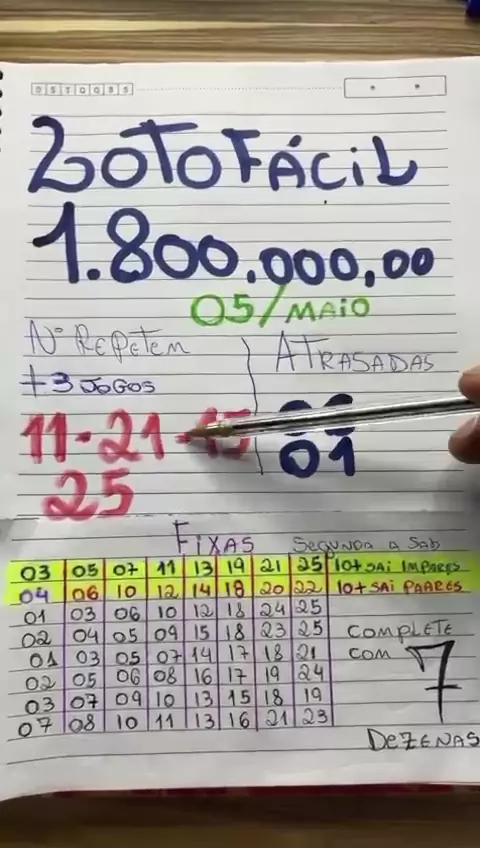 D S T Q Q S S
LOTOFÁCIL
1.800.000,00
05/MAIO
Nº REPETEM
+3 JOGOS
11-21-15
25
ATRASADAS
01
FIXAS SEGUNDA A SAB
03 05 07 11 13 19 21 25 10+ SAI IMPARES
04 06 10 12 14 18 20 22 10+ SAI PAARES
01 03 06 10 12 18 24 25
02 04 05 09 15 18 23 25 COMPLETE
01 03 05 07 14 17 18 21 COM 7
02 05 06 08 16 17 19 24
03 07 09 10 13 15 18 19
07 08 10 11 13 16 21 23
DEZENAS